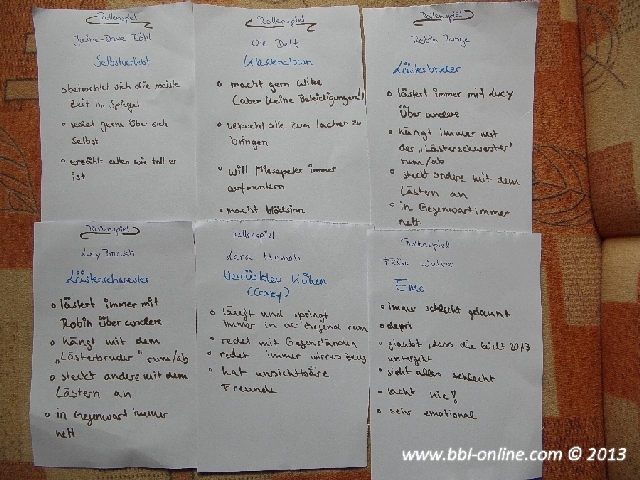 Rollenspiel
Selbstverliebt
betrachtet sich die meiste
Zeit im Spiegel
redet gerne über sich
selbst
erzählt allen wie toll er
ist
Rollenspiel
Klassenclown
macht gern Witze
(aber keine Beleidigungen!)
versucht alle zum lachen zu
bringen
will Miesepeter immer
aufmuntern
macht Blödsinn
Rollenspiel
Lästerbruder
lästert immer mit Lucy
über andere
hängt immer mit
der „Lästerschwester"
rum/ab
steckt andere mit dem
Lästern an
in Gegenwart immer
nett
Rollenspiel
Lucy
Lästerschwester
lästert immer mit
Robin über andere
hängt mit dem
„Lästerbruder" rum/ab
steckt andere mit dem
Lästern an
in Gegenwart immer
nett
Rollenspiel
Lara
Verrücktes Huhn
(Crazy)
läuft und springt
immer in der Gegend rum
redet mit Gegenständen
redet immer wirres Zeug
hat unsichtbare
Freunde
Rollenspiel
Emo
immer schlecht gelaunt
depri
glaubt, dass die Welt 2013
untergeht
sieht alles schlecht
lacht nie!
sehr emotional
www.bbl-online.com © 2013